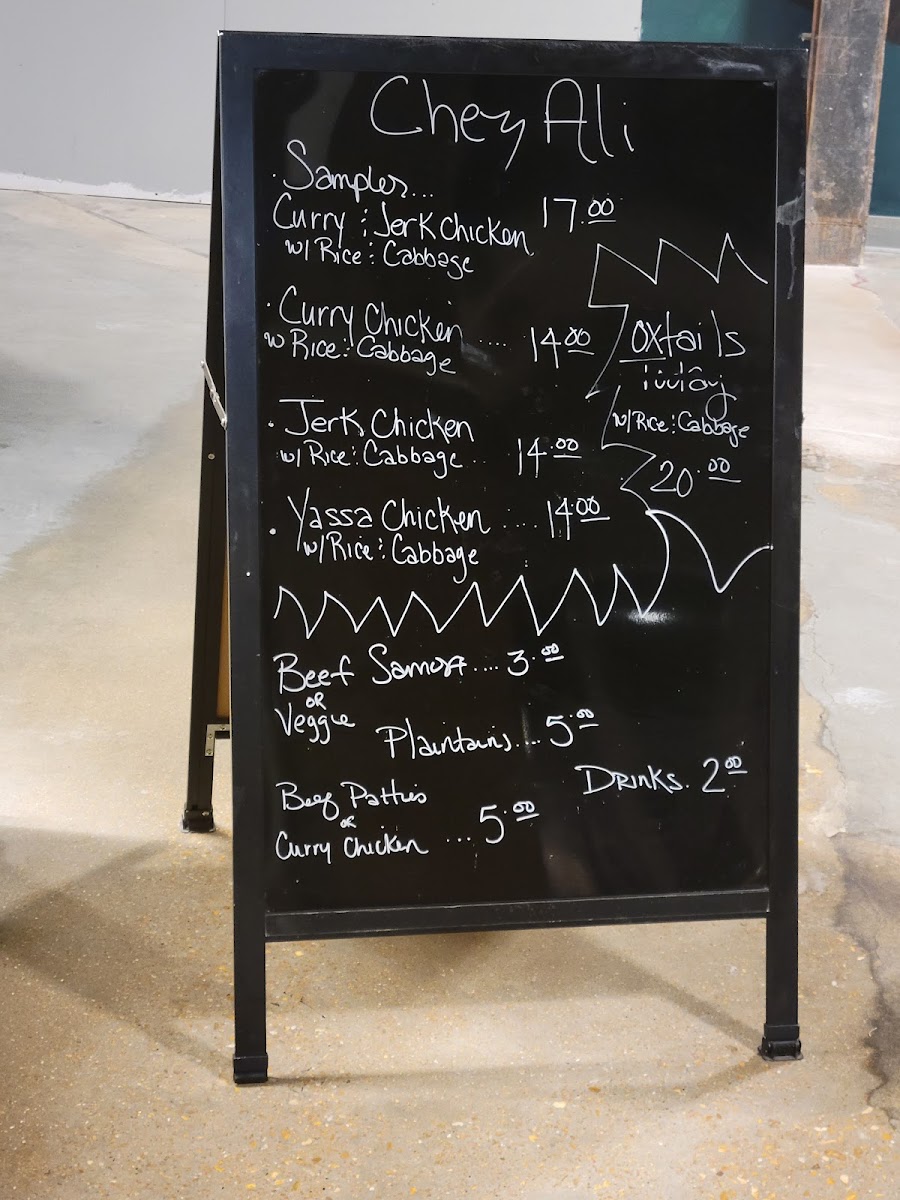 Chez Ali
· Sampler...
Curry & Jerk Chicken 17.00
w/ Rice & Cabbage
· Curry Chicken .... 14.00
w Rice & Cabbage
· Jerk Chicken
w/ Rice & Cabbage .. 14.00
· Yassa Chicken .... 14.00
w/ Rice & Cabbage
Oxtails
Today
w/ Rice & Cabbage
20.00
Beef Samosa .... 3.00
OR
Veggie
Plaintains.... 5.00
Drinks. 2.00
Beef Patties
or
Curry Chicken ... 5.00